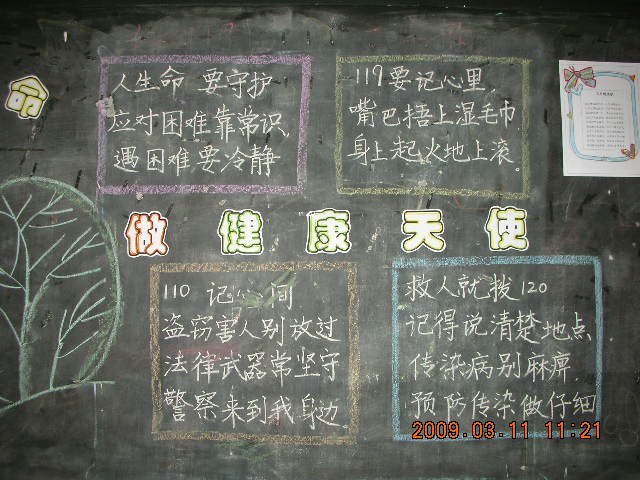 命
人生命 要守护
应对困难靠常识,
遇困难要冷静
119要记心里,
嘴巴捂上湿毛巾
身上起火地上滚。
做 健 康 天 使
110 记心间
盗窃害人别放过
法律武器常坚守
警察来到我身边.
救人就拨120
记得说清楚地点
传染病别麻痹,
预防传染做仔细
2009.03.11 11:21